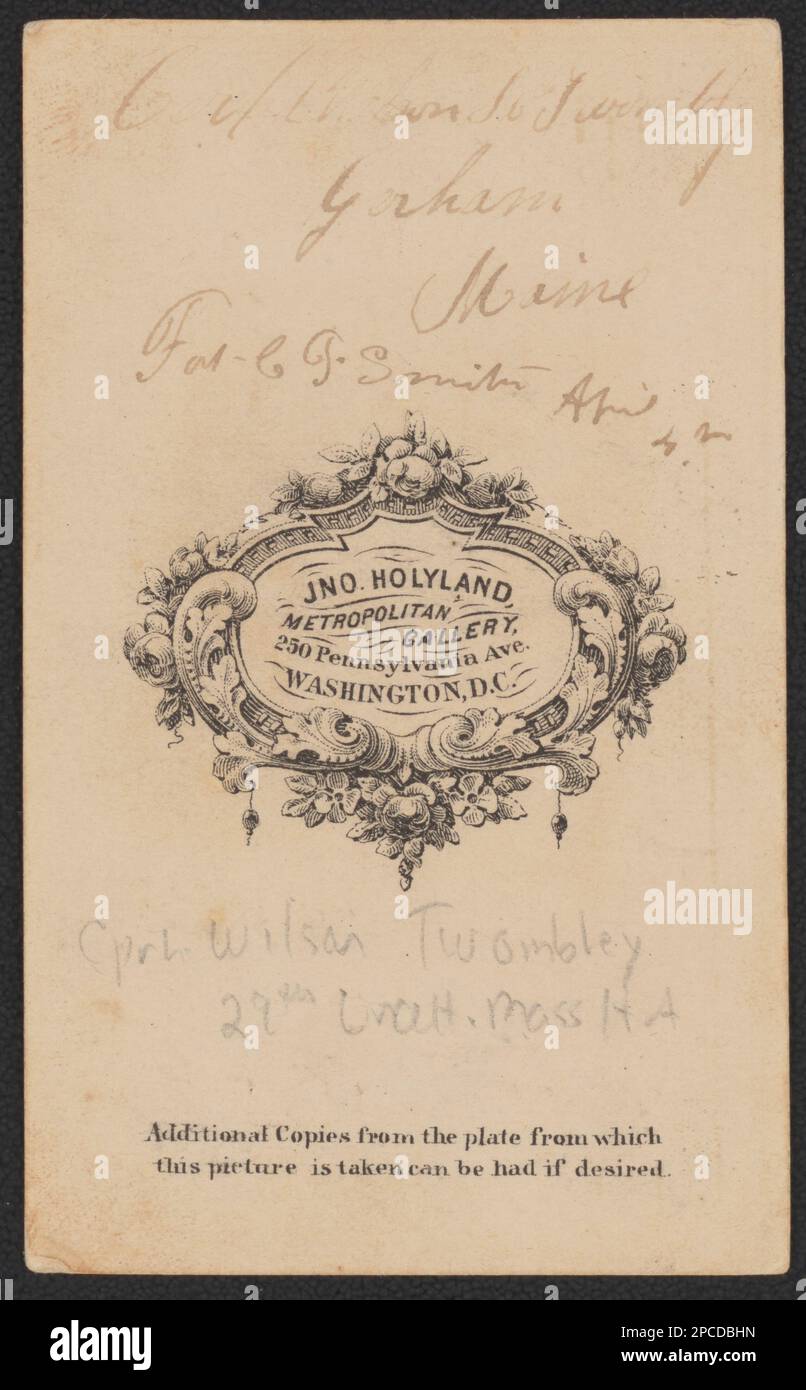 Gorham
Maine
Fort C F. Smith April
JNO. HOLYLAND,
METROPOLITAN
GALLERY,
250 Pennsylvania Ave.
WASHINGTON, D.C.
Wilson Twombley
29th Unatt. Mass H A
Additional Copies from the plate from which
this picture is taken can be had if desired.
alamy
Image ID: 2PCDBHN
www.alamy.com